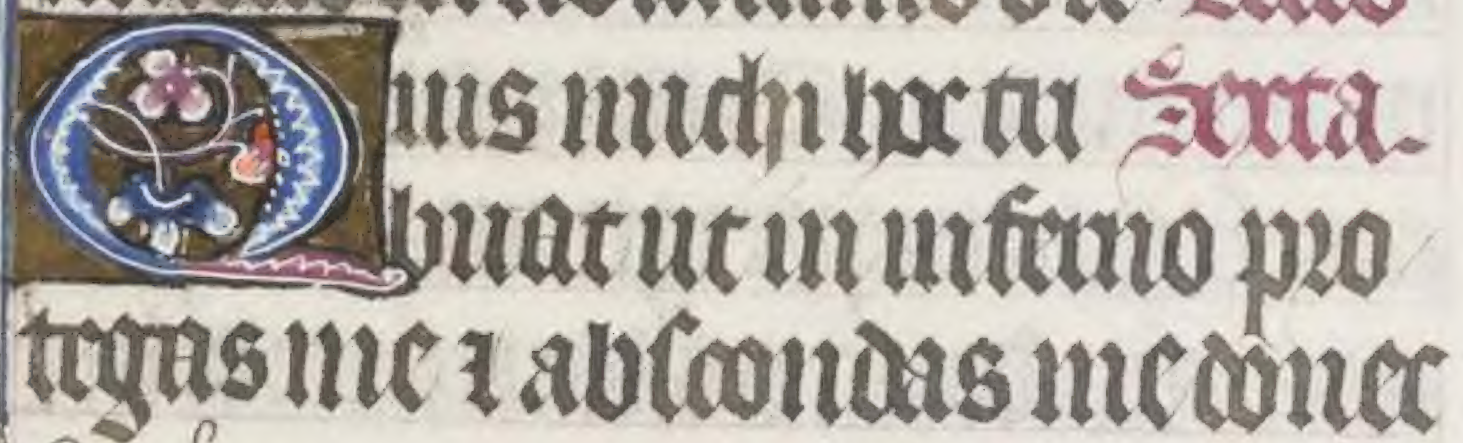 Quis michi hoc tri Sexta.
buat ut in inferno pro
tegas me ⁊ abscondas me donec